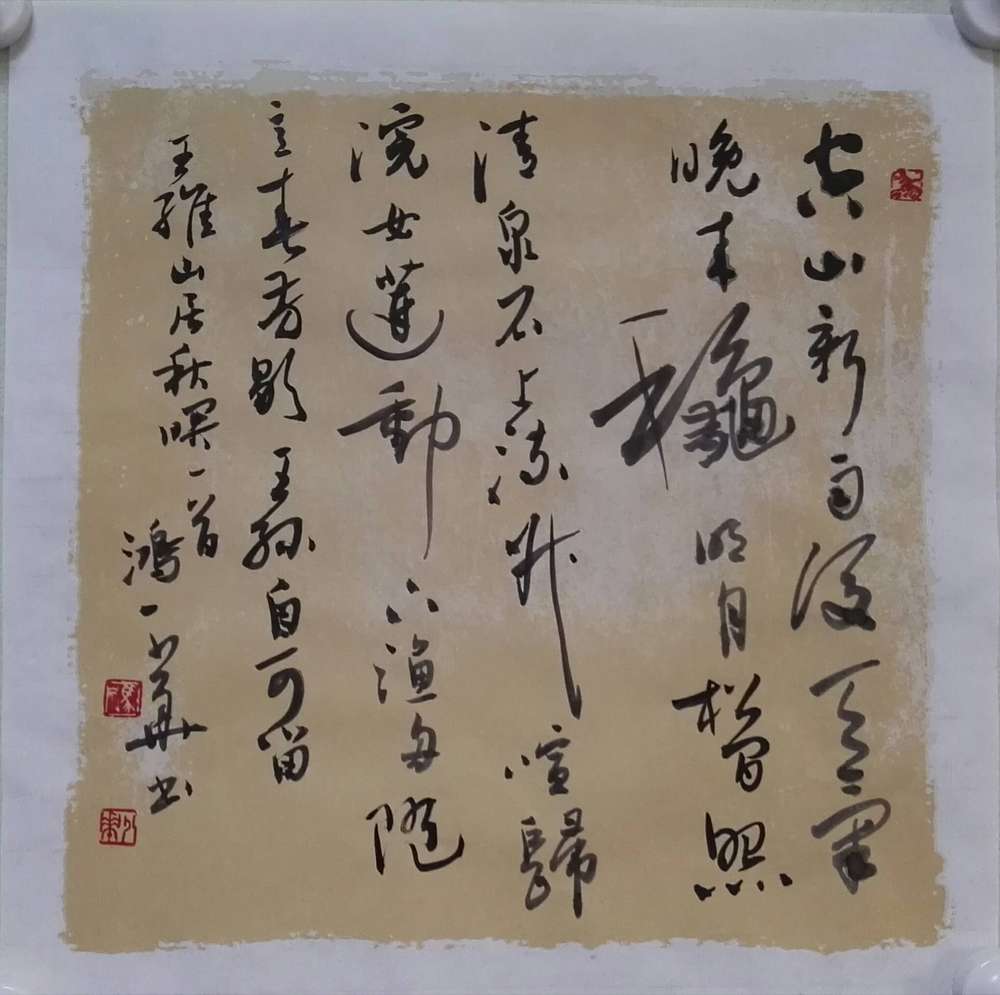 空山新雨後天氣
晚來龝明月松間照
清泉石上流竹喧歸
浣女蓮動下漁舟隨
意春芳歇王孫自可留
王維山居秋暝一首
鴻一華书